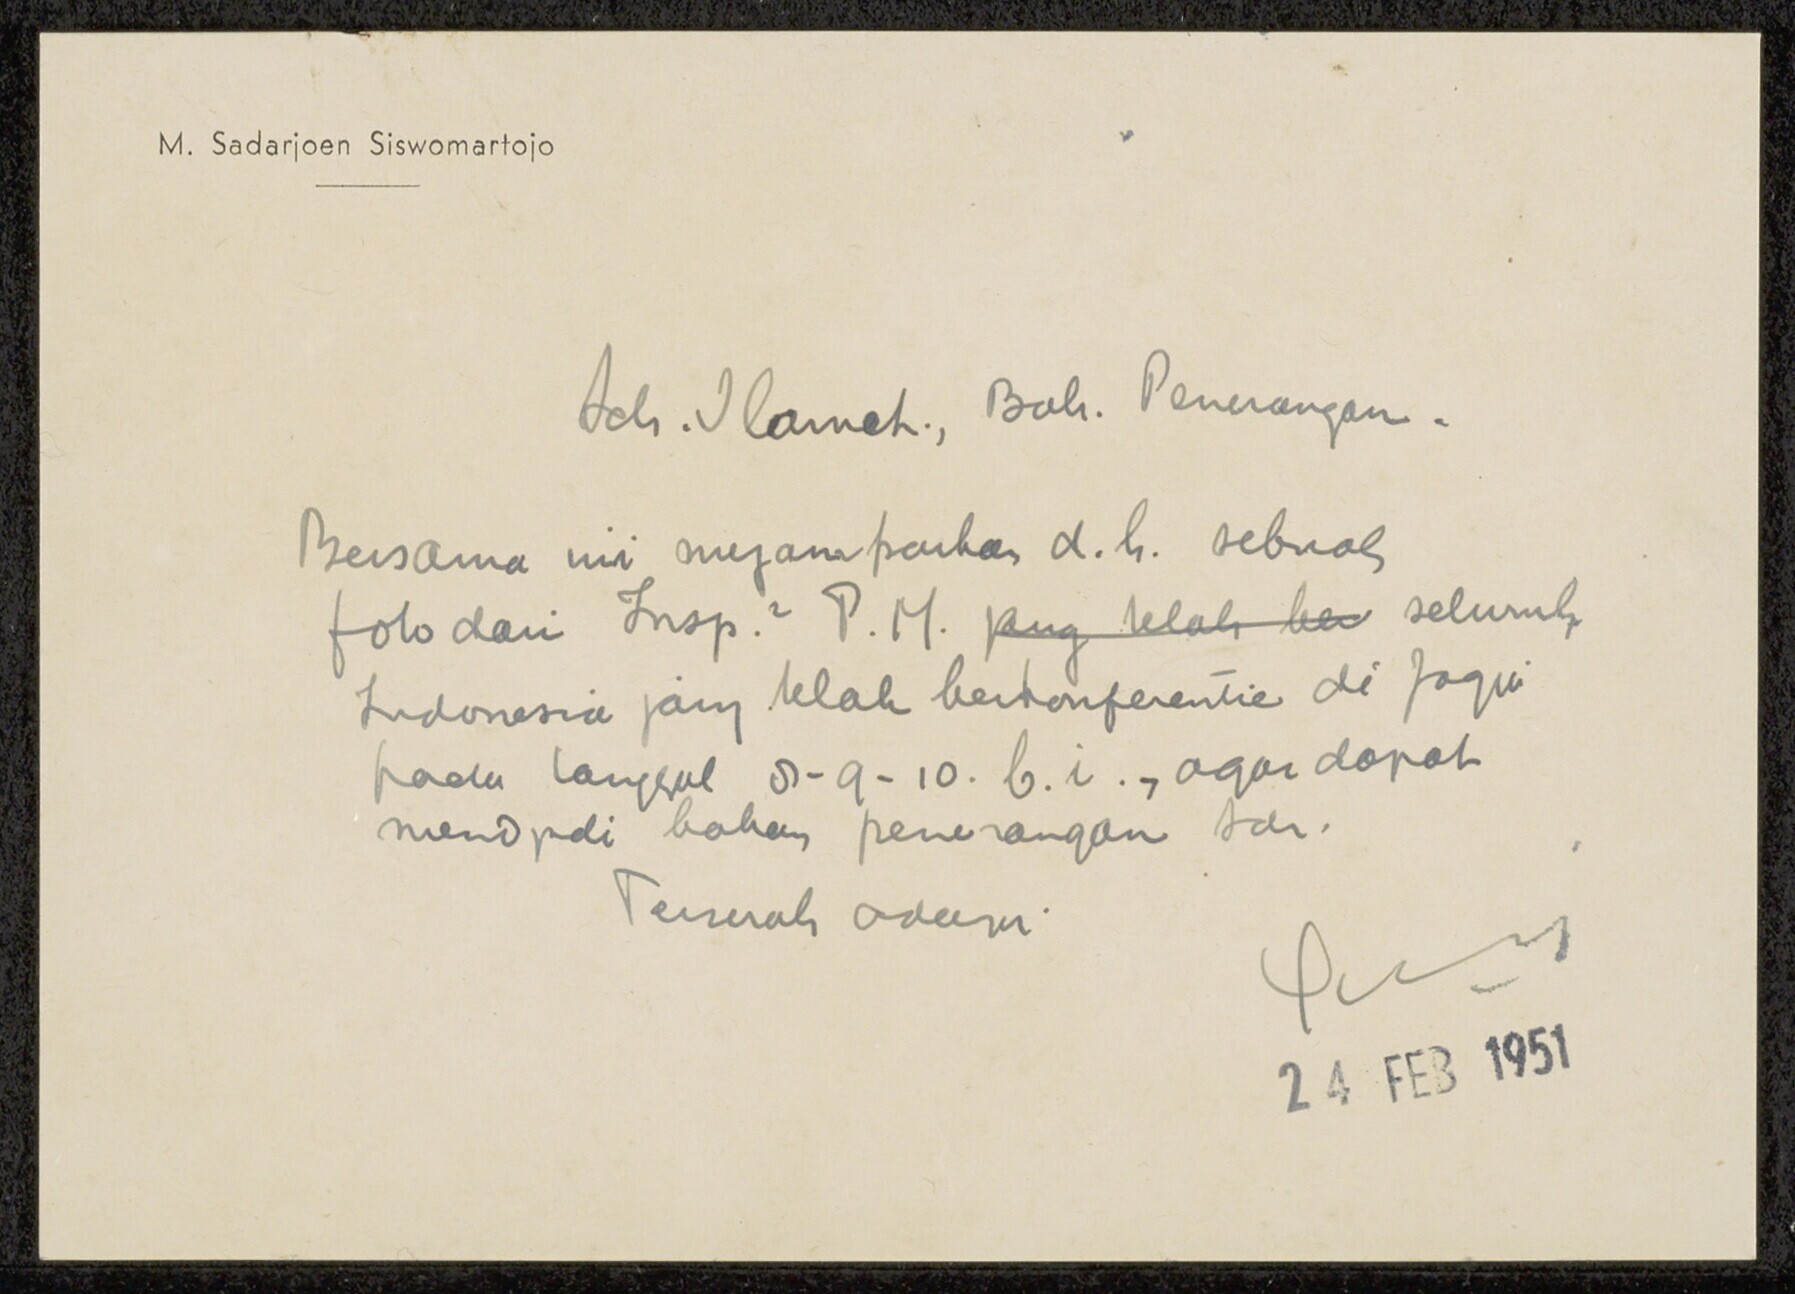 M. Sadarjoen Siswomartojo
Sdr. Slamet., Bah. Penerangan.
Bersama ini menjampaikan d.h. sebuah
foto dari Insp.2 P.M. jang telah be seluruh
Indonesia jang telah berkonferentie di Jogja
pada tanggal 8-9-10. b.i., agar dapat
mendjadi bahan penerangan sdr.
Terserah adanja.
24 FEB 1951